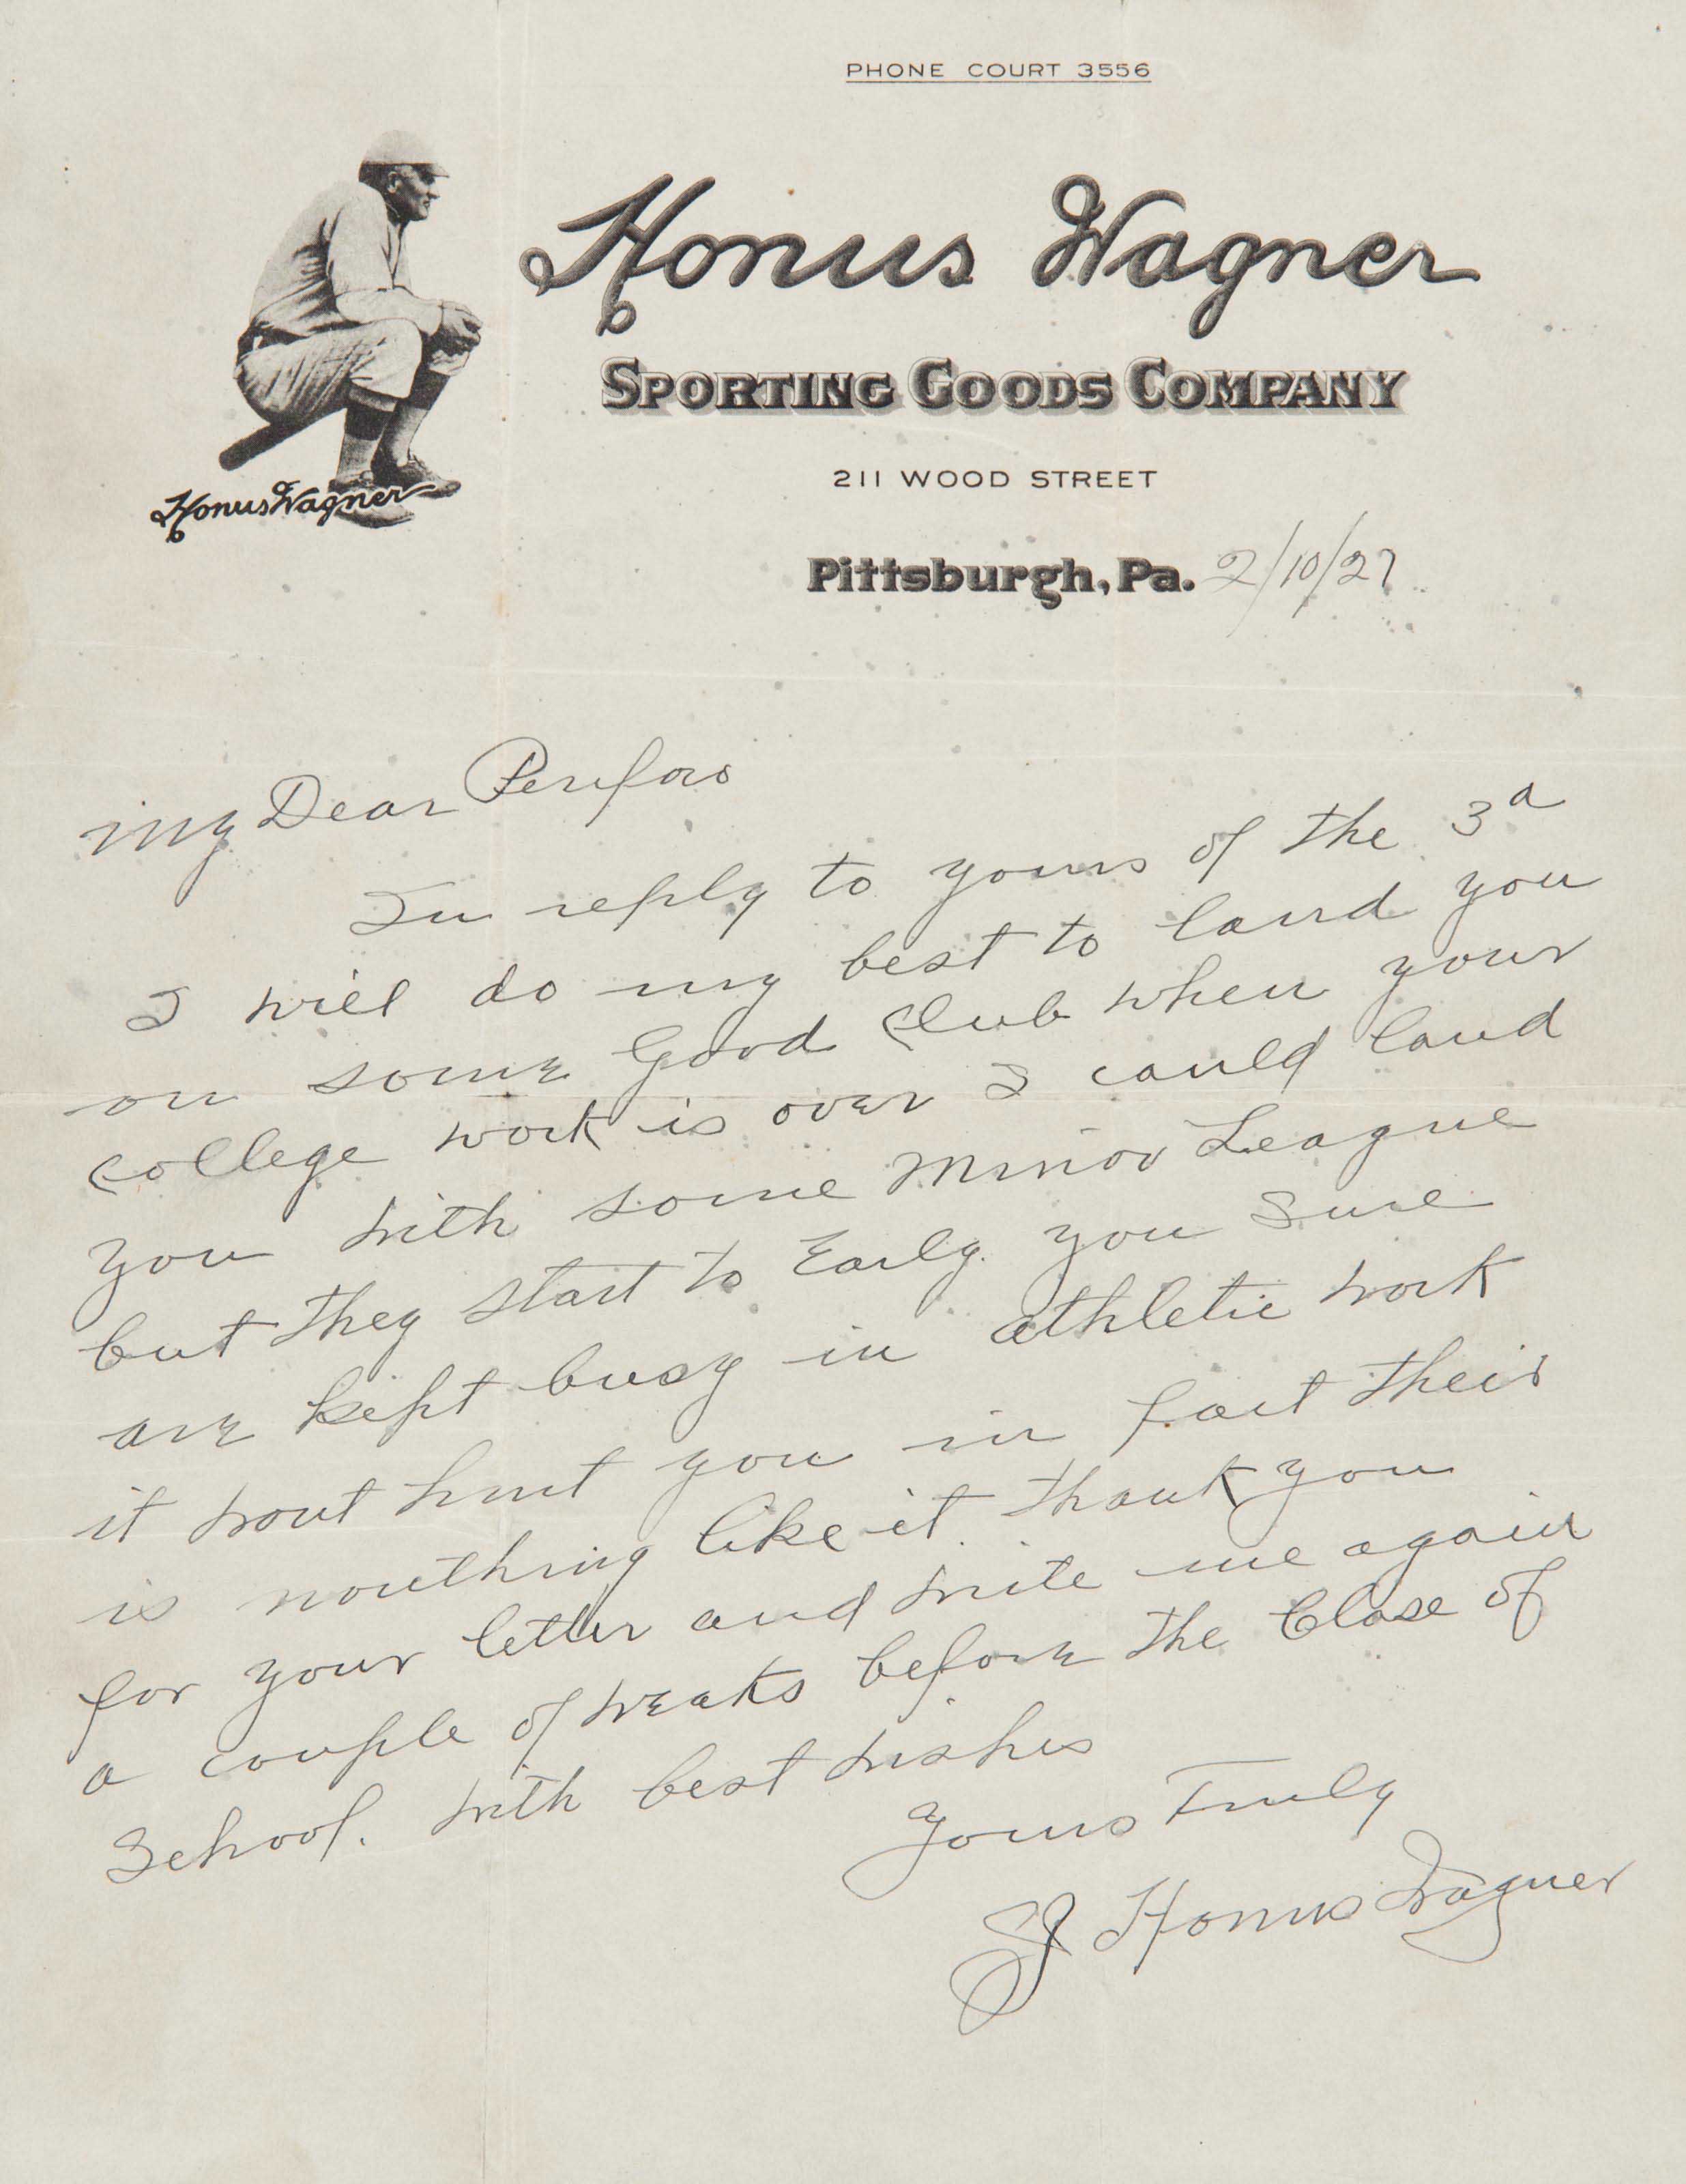 PHONE COURT 3556
Honus Wagner
SPORTING GOODS COMPANY
211 WOOD STREET
Pittsburgh, Pa. 2/10/27
Honus Wagner
my Dear
In reply to yours of the 3d
I will do my best to land you
on some good club when your
college work is over I could land
you with some Minor League
but they start to Early. you sure
are kept busy in athletic work
it wont hurt you in fact their
is nouthing like it. thank you
for your letter and write me again
a couple of weaks before the Close of
School. with best wishes
Yours Truly
J Honus Wagner